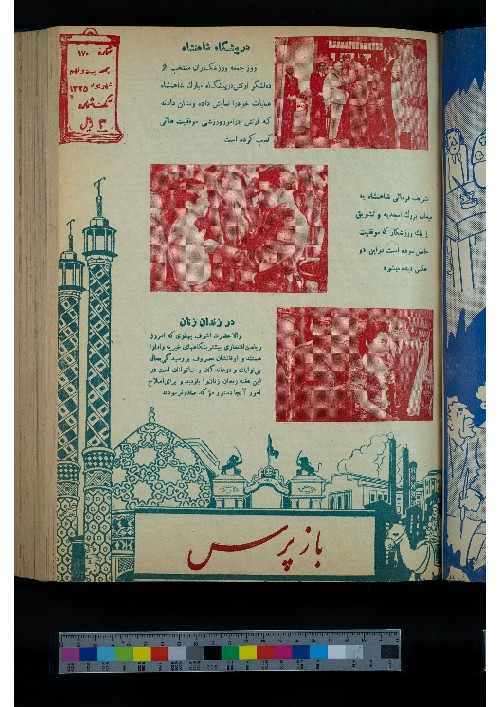 شماره ۱۷۰
جمعه بیست و نهم
شهریور ۱۳۲۵
تکشماره
۳ ریال
در پیشگاه شاهنشاه
روز جمعه ورزشکاران منتخب از
دولشکر ارتش در پیشگاه مبارک شاهنشاه
عملیات خود را نمایش داده و نشان دادند
که ارتش در امور ورزشی موفقیت هائی
کسب کرده است
تشریف فرمائی شاهنشاه به
میدان بزرگ امجدیه و تشویق
یک ورزشکار که موفقیت
حاصل نموده است در این دو
عکس دیده میشود
در زندان زنان
والا حضرت اشرف پهلوی که امروز
ریاست افتخاری بیشتر بنگاههای خیریه را دارا
هستند و اوقاتشان مصروف برسیدگی بحال
بی نوایان و درماندگان و ناتوانان است در
این هفته زندان زنان را بازدید و برای اصلاح
امور آنجا دستور مؤکد صادر فرمودند
باز پرس